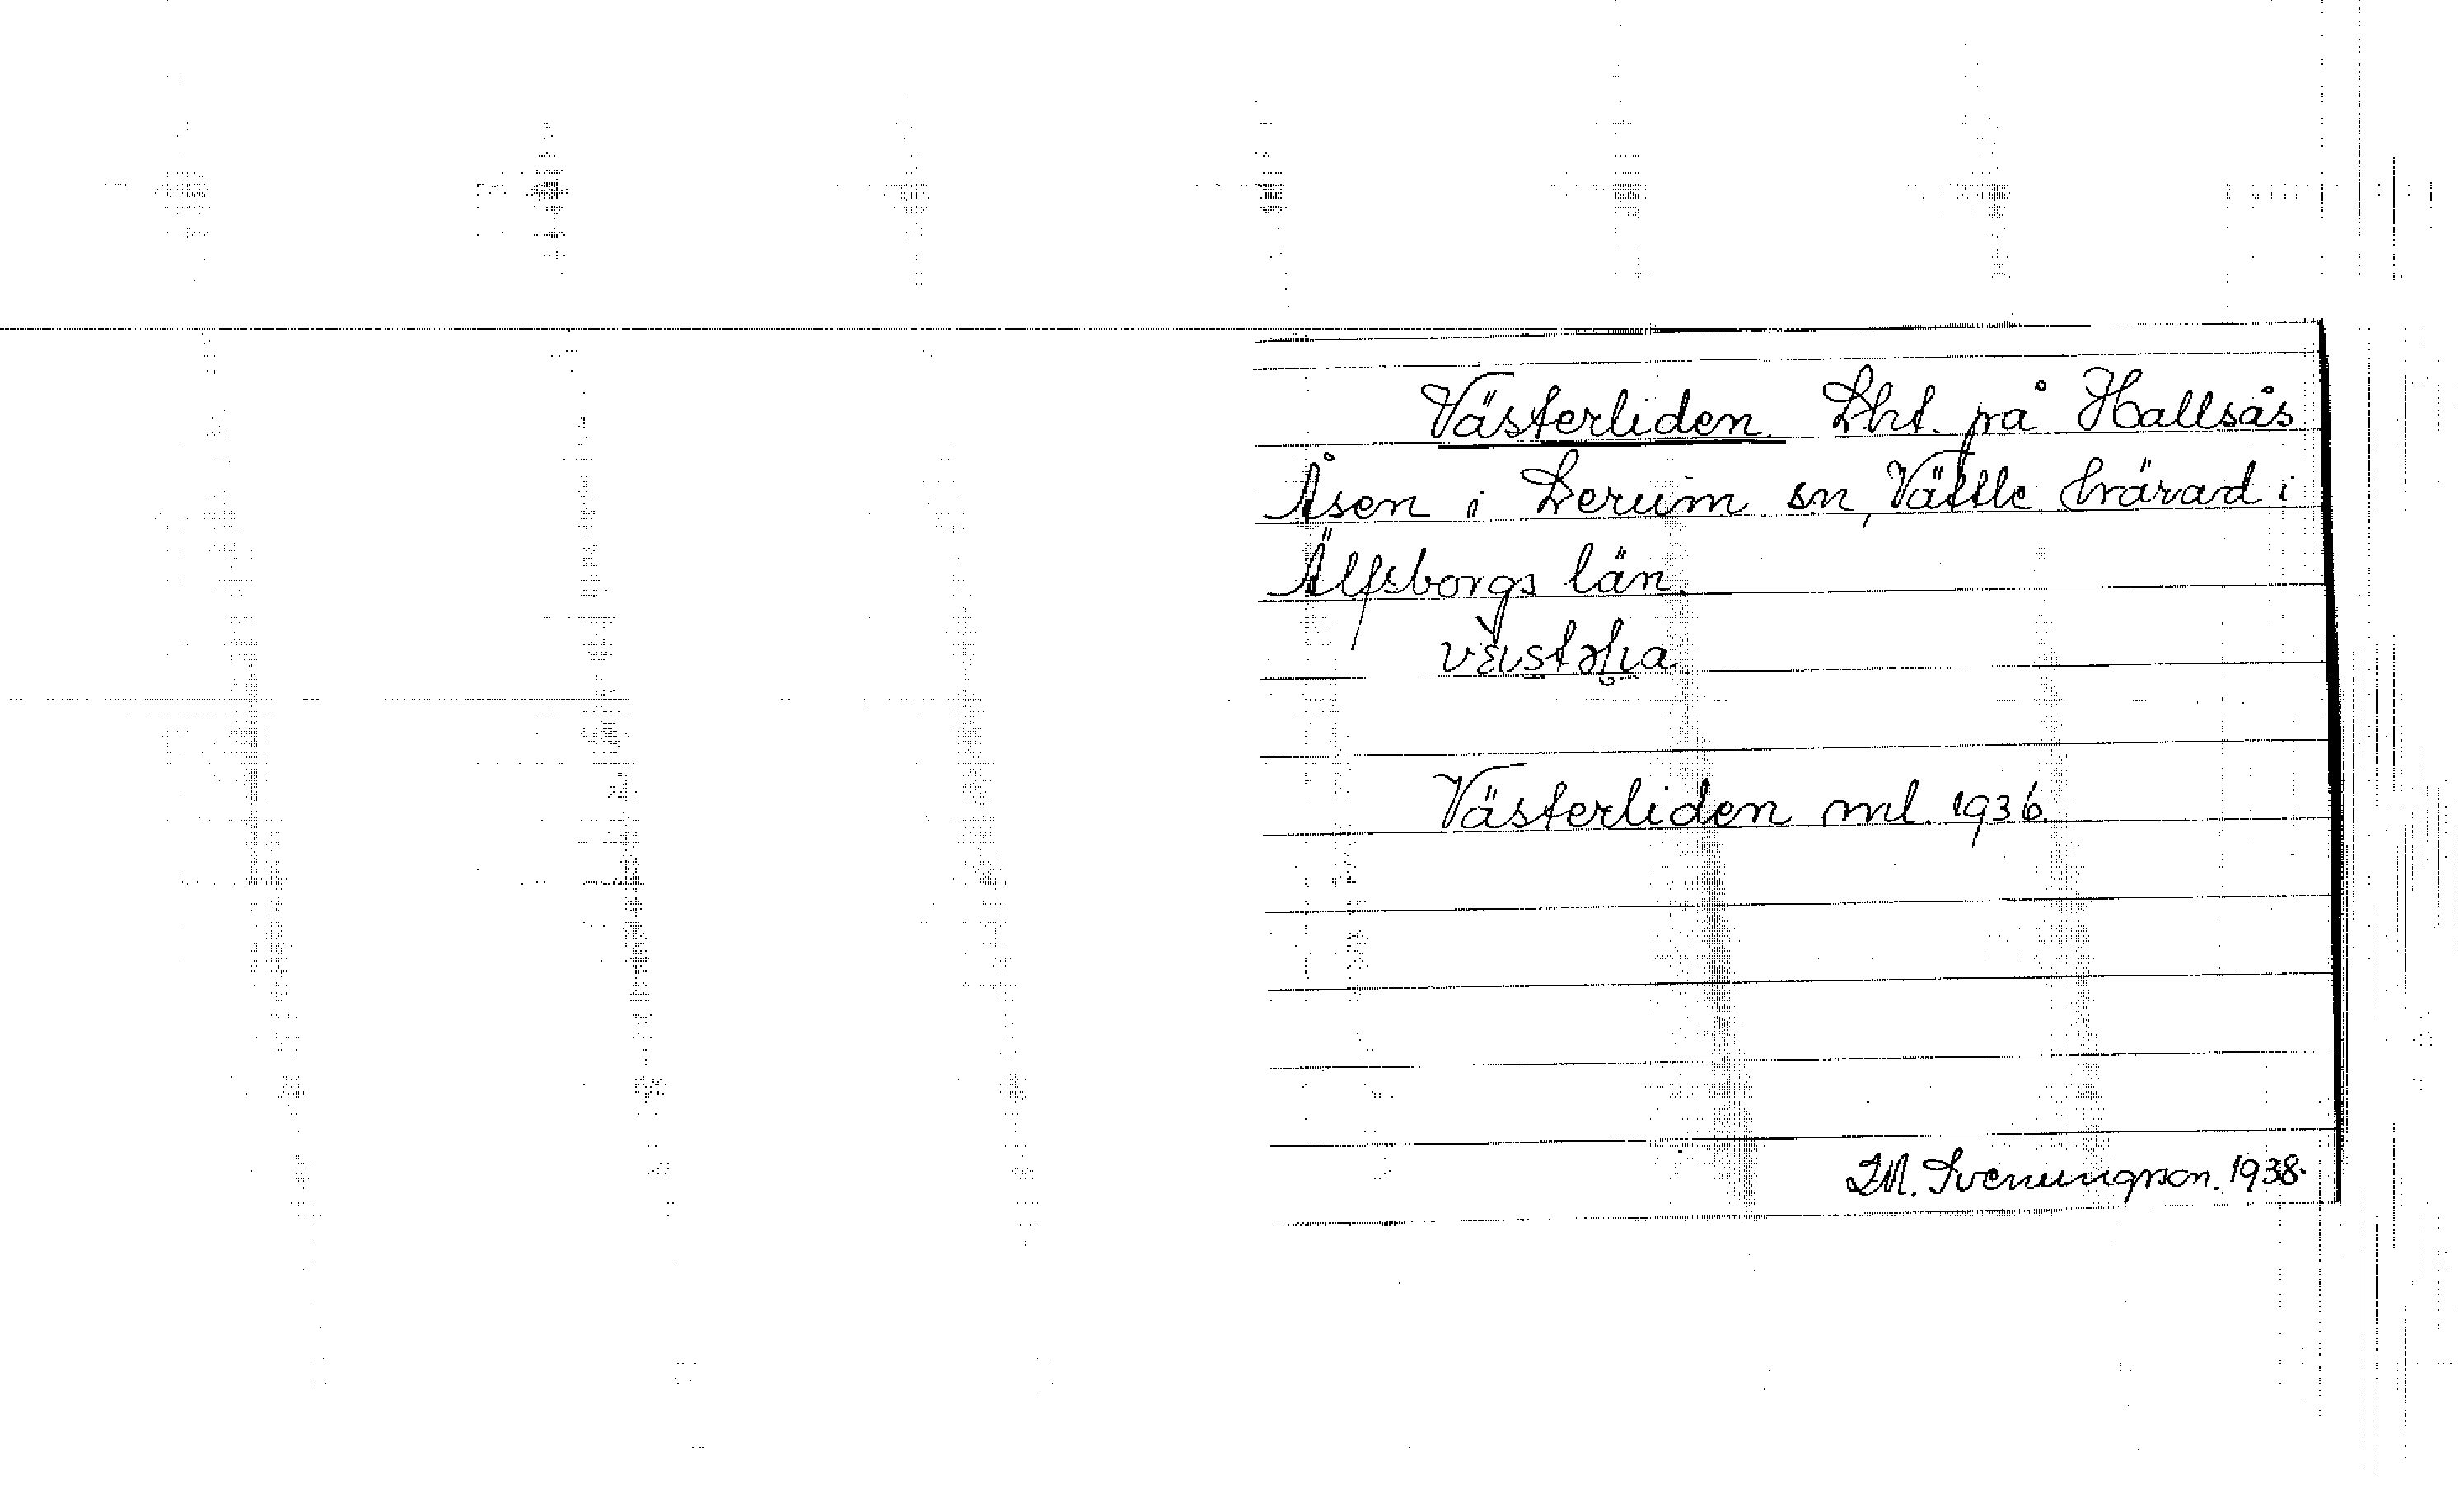 Västerliden. Lht. på Hallsås
Åsen i Lerum sn, Vättle härad i
Älfsborgs län.
Västerliden ml. 1936.
I.M. Svenungsson. 1938.